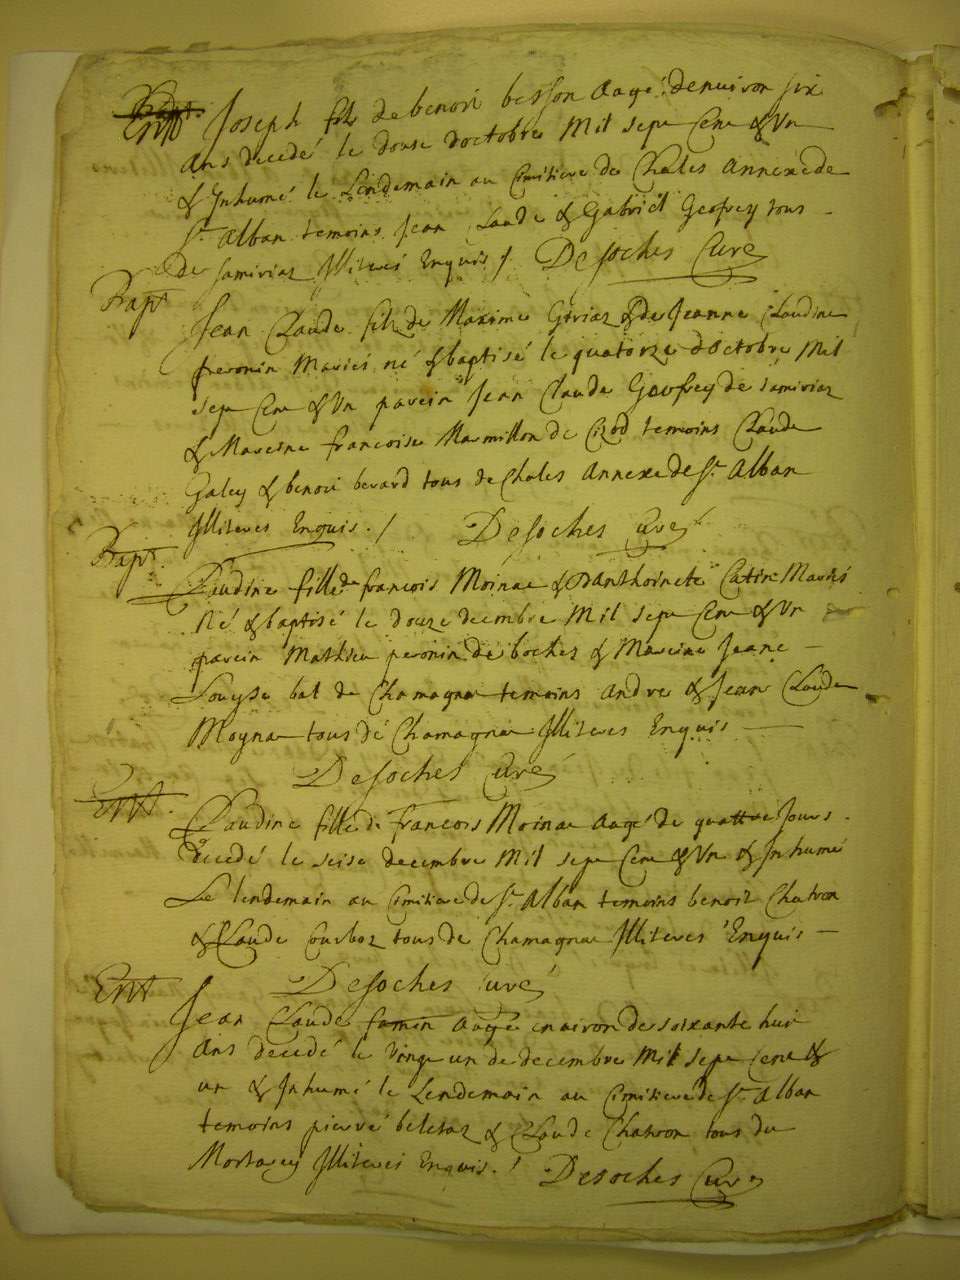 Ent Joseph filz de benoit besson aagé denuiron six
ans decedé le douse doctobre mil sept Cent & Un
& Inhumé le Lendemain au Cimitiere de Chales annexe de
St Alban temoins Jean Claude & Gabriel Geofrey tous
de samiriaz Illiterés Enquis / Desoches Curé
Bapt
Jean Claude filz de Maxime Giriaz & de Jeanne Claudine
peronin Mariés né & baptisé le quatorze d'octobre Mil
sept Cent & Un parein Jean Claude Geoffrey de samiriaz
& Mareine francoise Marmillon de Cizod temoins Claude
Galey & benoit berard tous de Chales annexe de St Alban
Illiteres Enquis. / Desoches Curé
Bapt.
Claudine fille de francois Moinat & Danthoinete Catin Mariés
Né & baptisé le douze decembre Mil sept Cent & Un
parein Mathieu peronin de boches & Mareine Jeane
Louyse bat de Chamagnat temoins andre & Jean Claude
Moynat tous de Chamagnat Illiteres Enquis
Desoches Curé
Ent.
Claudine fille de francois Moinat aagé de quattre Jours.
Decedé le seise decembre Mil sept Cent & Un & Inhumé
Le lendemain au Cimitiere de St Alban temoins benoit Chatron
& Claude Courboz tous de Chamagnat Illiteres Enquis
Desoches Curé
Ent
Jean Claude famin aagé enairon de soixante huit
Ans decedé le Vingt un de decembre Mil sept Cent &
un & Inhumé le Lendemain au Cimitiere de St Alban
temoins pierre beletaz & Claude Chatron tous du
Mortarey Illiterés Enquis. / Desoches Curé